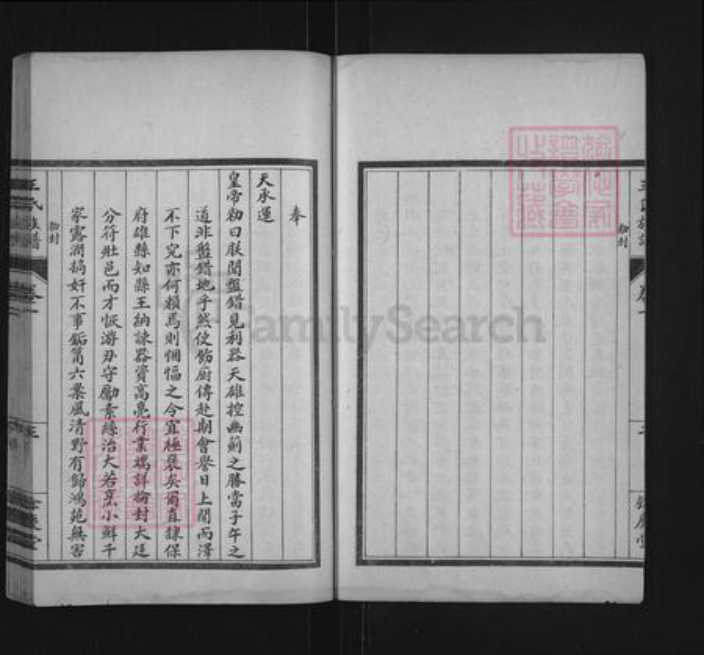 奉
天承運
皇帝勅曰朕聞盤錯見利器天雄控幽薊之勝當子午之
道非盤錯地乎然使飾廚傳赴期會譽日上聞而澤
不下究亦何賴焉則悃愊之令宜極褒矣爾直隸保
府雄縣知縣王納諫器資高亮行業端詳掄封大廷
分符壯邑而才恢游刃守勵素絲治大若烹小鮮千
家露潤搞奸不事鉐筩六案風清野有歸鴻苑無害
王氏族譜
卷一
FamilySearch